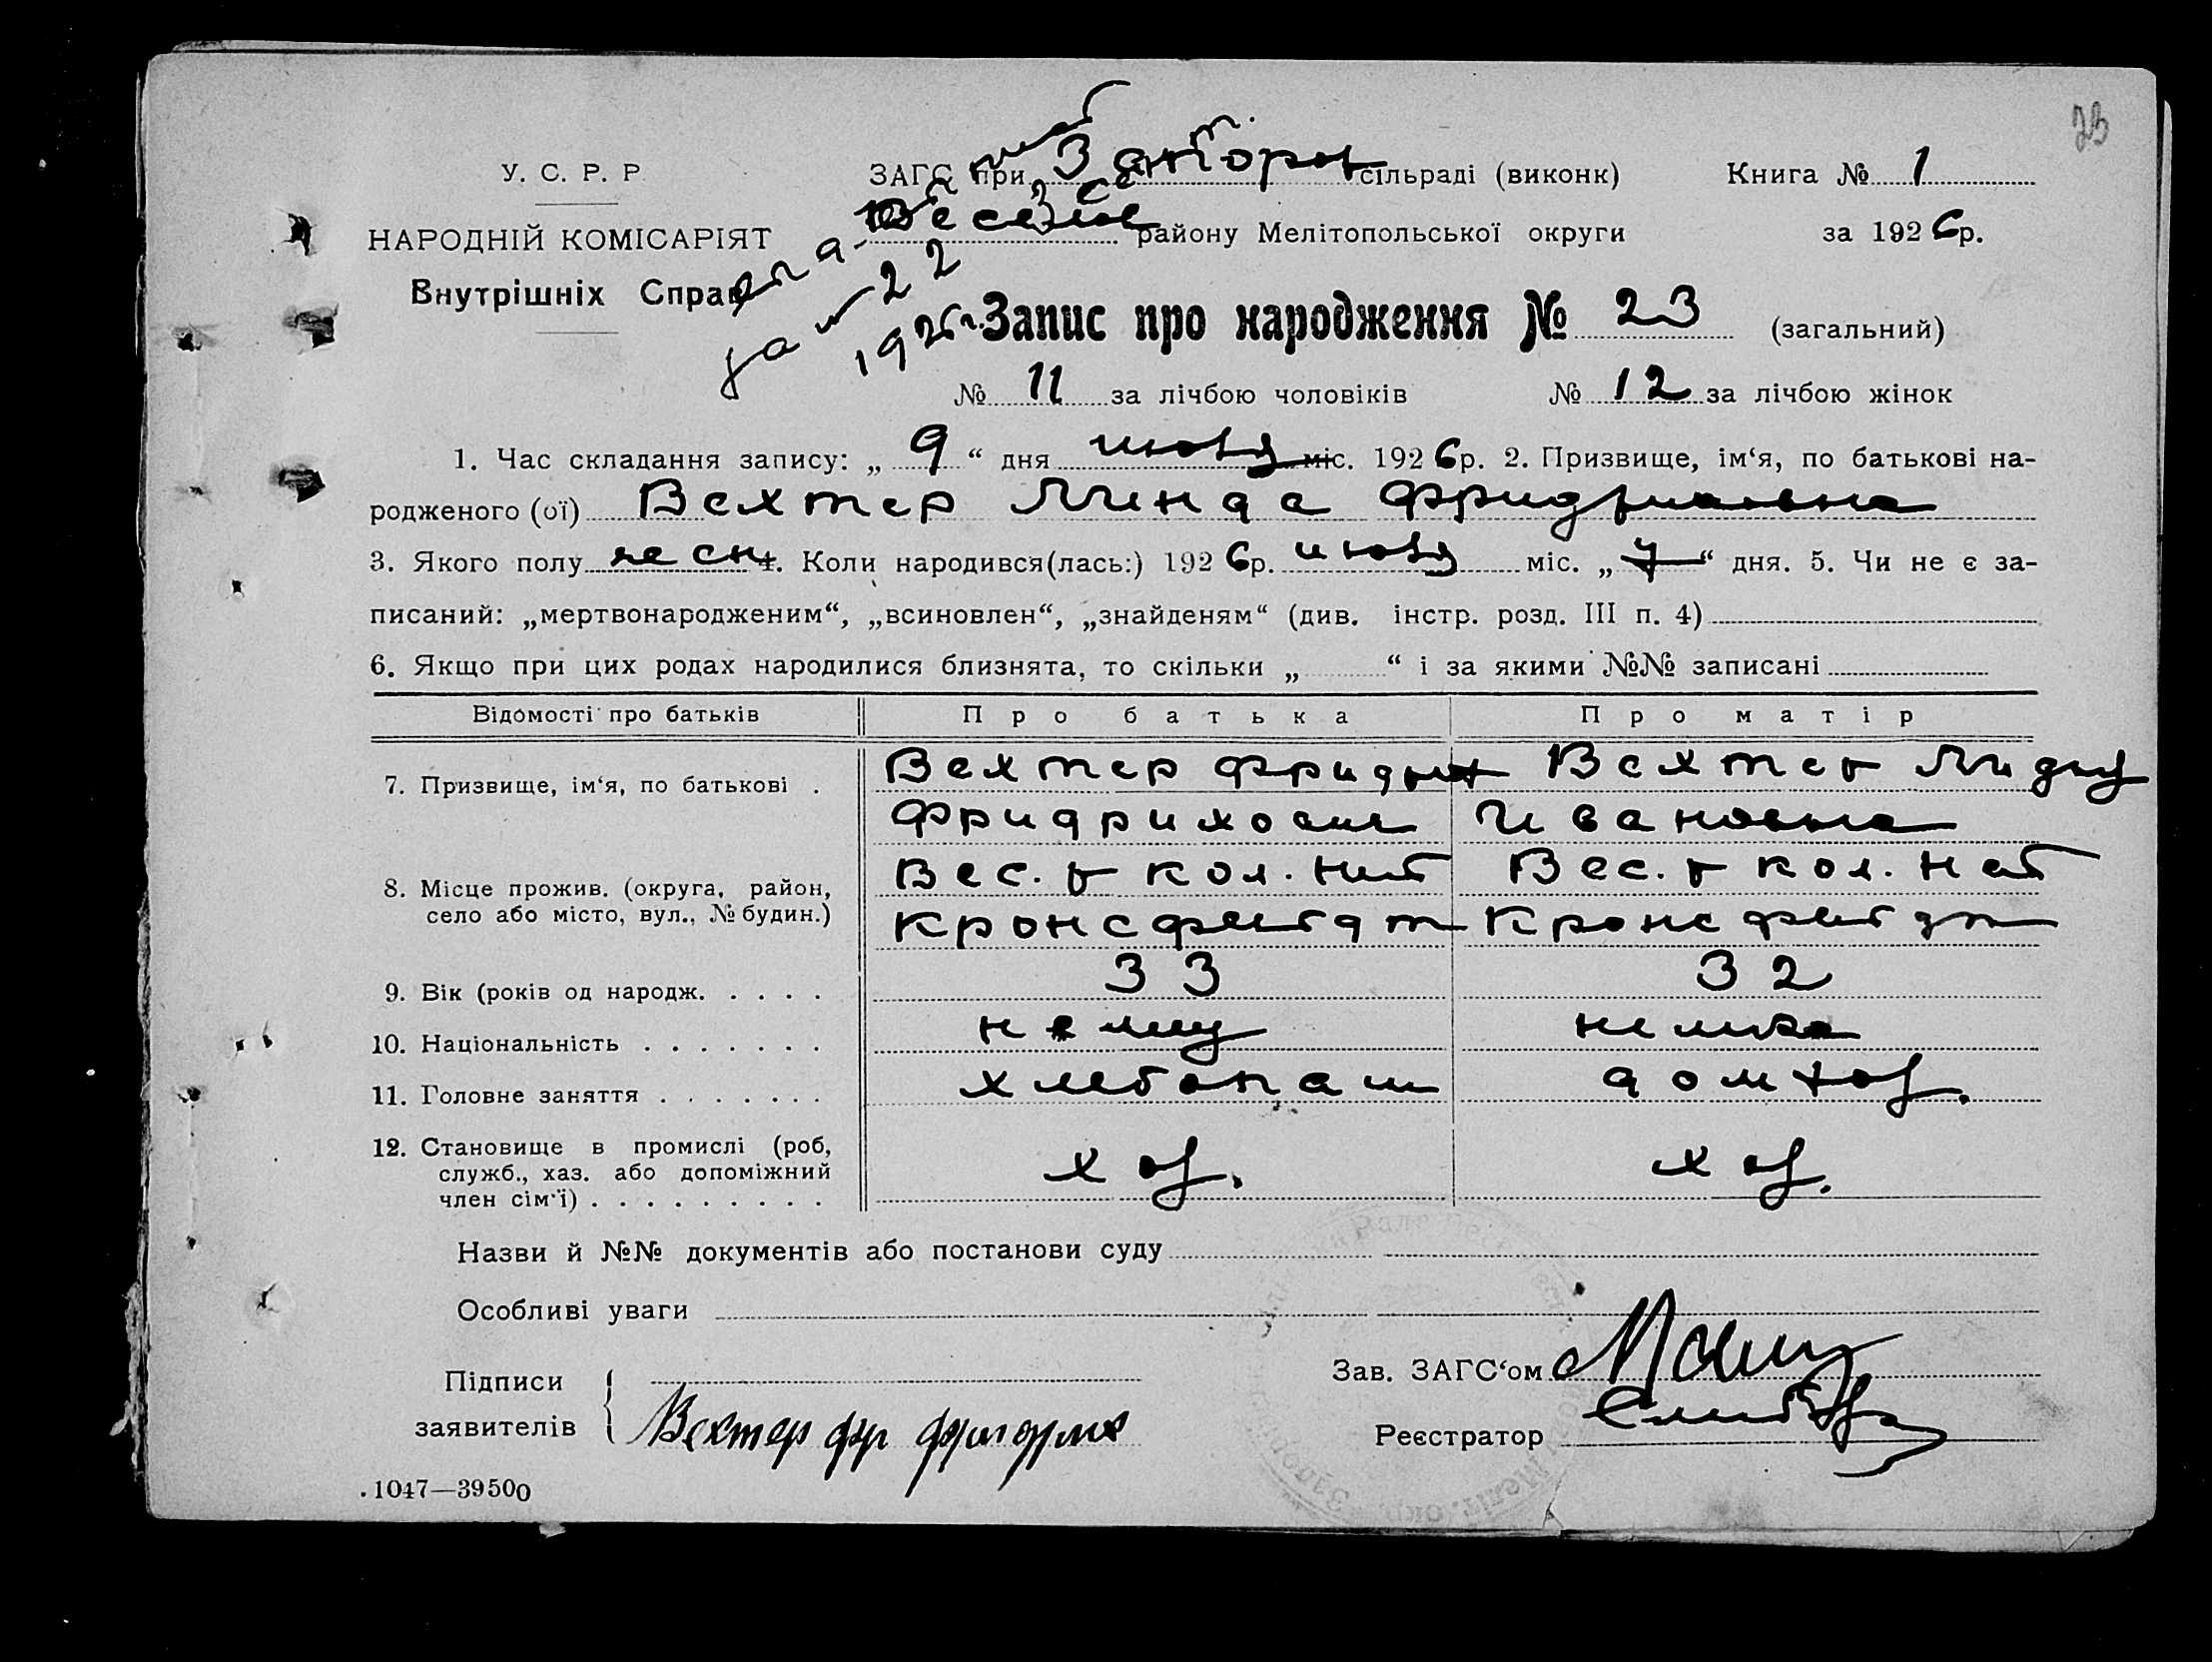 23
У. С. Р. Р
ЗАГС при сільраді (виконк) Книга № 1
НАРОДНІЙ КОМІСАРІЯТ району Мелітопольської округи за 1926р.
Внутрішніх Справ
22
1926 г. Запис про народження № 23 (загальний)
№ 11 за лічбою чоловіків № 12 за лічбою жінок
1. Час складання запису: „ 9 “ дня июля міс. 1926р. 2. Призвище, ім‘я, по батькові на-
родженого (ої) Вехтер Линда Фридриховна
3. Якого полу женск 4. Коли народився(лась:) 1926р. июля міс. „ 7 “ дня. 5. Чи не є за-
писаний: „мертвонародженим“, „всиновлен“, „знайденям“ (див. інстр. розд. III п. 4)
6. Якщо при цих родах народилися близнята, то скільки „ “ і за якими №№ записані
Відомості про батьків Про батька Про матір
7. Призвище, ім‘я, по батькові . Вехтер Фридрих Вехтер
Фридрихович Ивановна
8. Місце прожив. (округа, район, Вес. р кол. Вес. р кол.
село або місто, вул., № будин.) Кронсфельдт Кронсфельдт
9. Вік (років од народж. . . . . 33 32
10. Національність . . . . . . . немец немка
11. Головне заняття . . . . . . . хлебопаш домхоз.
12. Становище в промислі (роб, хоз. хоз.
служб., хаз. або допоміжний
член сім‘ї) . . . . . . . . .
Назви й №№ документів або постанови суду
Особливі уваги
Підписи Зав. ЗАГС‘ом
заявителів Вехтер фр фридрих Реєстратор
.1047—39500